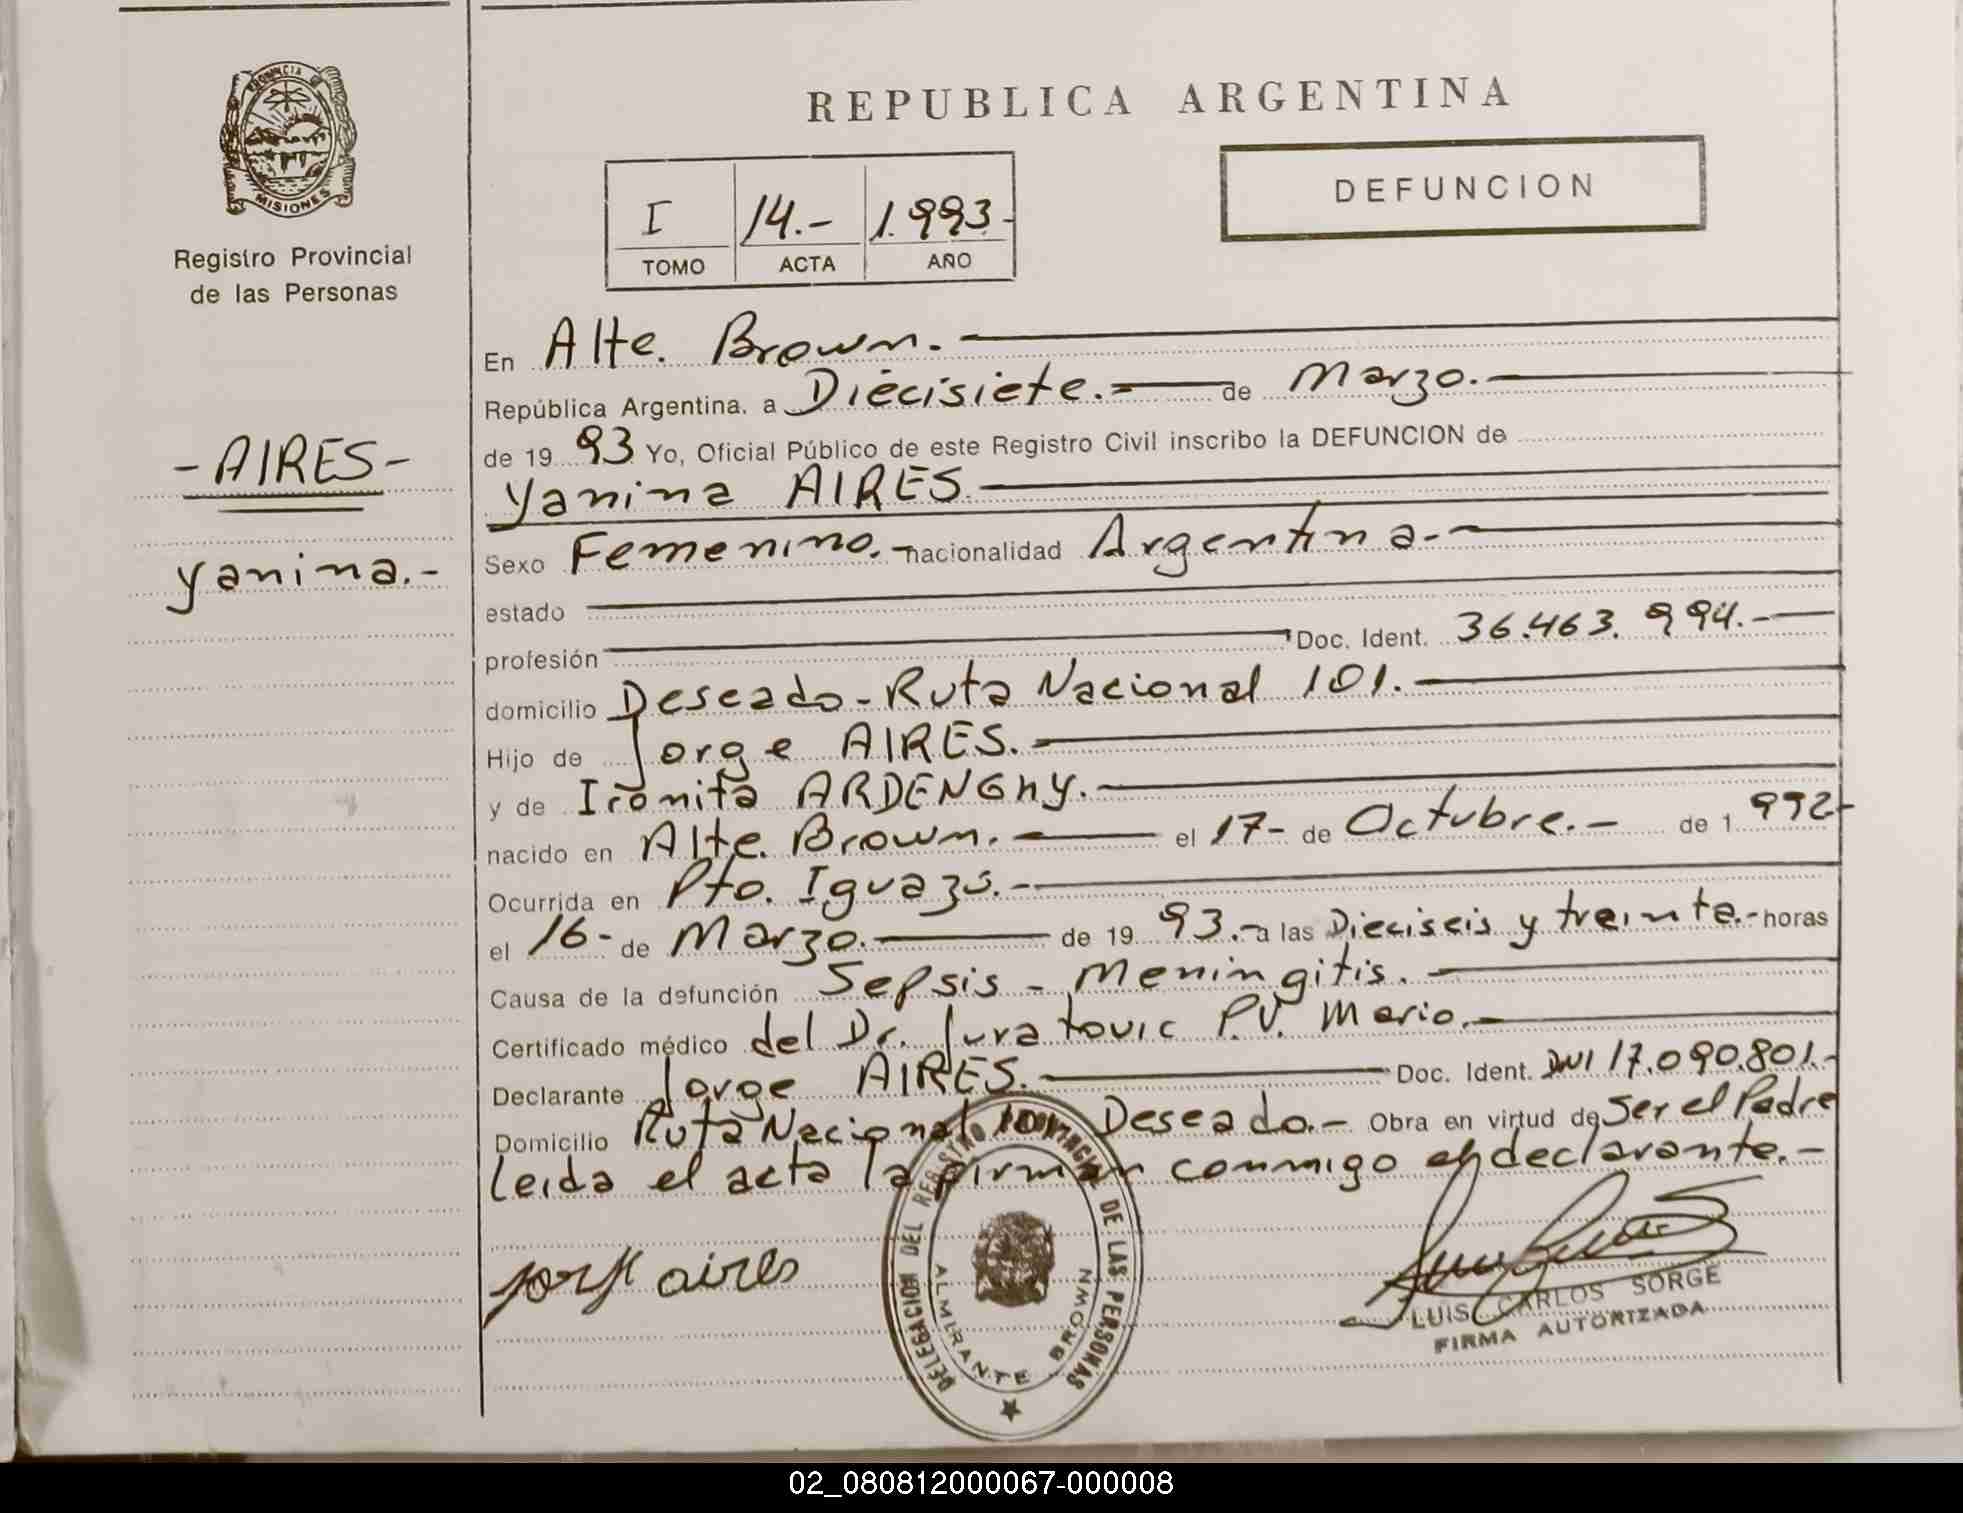 PROVINCIA DE
MISIONES
Registro Provincial
de las Personas
-AIRES-
Yanina.-
REPUBLICA ARGENTINA
DEFUNCION
I 14.- 1.993.-
TOMO ACTA AÑO
En Alte. Brown.
República Argentina, a Diécisiete.- de Marzo.-
de 19 93 Yo, Oficial Público de este Registro Civil inscribo la DEFUNCION de
Yanina AIRES.
Sexo Femenino.- nacionalidad Argentina.-
estado
profesión Doc. Ident. 36.463.994.-
domicilio Deseado-Ruta Nacional 101.-
Hijo de Jorge AIRES.-
y de Ironita ARDENGHY.-
nacido en Alte. Brown.- el 17- de Octubre.- de 1 992-
Ocurrida en Pto. Iguazú.-
el 16- de Marzo.- de 19 93.- a las Dieciseis y treinta.- horas
Causa de la defunción Sepsis - Meningitis.-
Certificado médico del Dr. Juratovic P.V. Mario.-
Declarante Jorge AIRES. Doc. Ident. DNI 17.090.801.-
Domicilio Ruta Nacional 101- Deseado.- Obra en virtud de Ser el Padre
Leida el acta la firman conmigo el declarante.-
jorge aires
DELEGACION DEL REGISTRO PROVINCIAL DE LAS PERSONAS
ALMIRANTE BROWN
LUIS CARLOS SORGE
FIRMA AUTORIZADA
02_080812000067-000008